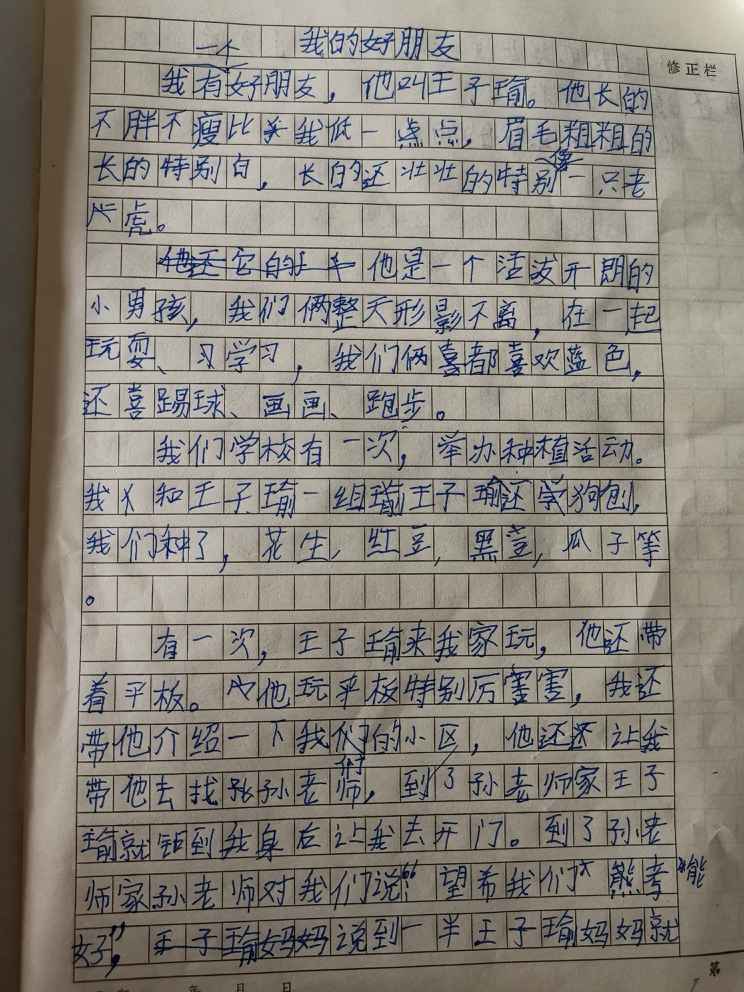 我的好朋友
修正栏
我有一个好朋友，他叫王子瑜。他长的
不胖不瘦比我低一点点，眉毛粗粗的
长的特别白，长的还壮壮的特别像一只老
虎。
他是一个活泼开朗的
小男孩，我们俩整天形影不离，在一起
玩耍、习学习，我们俩喜都喜欢蓝色，
还喜踢球、画画、跑步。
我们学校有一次，举办种植活动。
我和王子瑜一组瑜王子瑜还学狗刨，
我们种了，花生，红豆，黑豆，瓜子等
。
有一次，王子瑜来我家玩，他还带
着平板。他玩平板特别厉害害，我还
带他介绍一下我们的小区，他还让我
带他去找孙老师，到了孙老师家王子
瑜就钻到我身后让我去开门。到了孙老
师家孙老师对我们说：“望希我们能考
好”，王子瑜妈妈说到一半王子瑜妈妈就
年 月 日
第